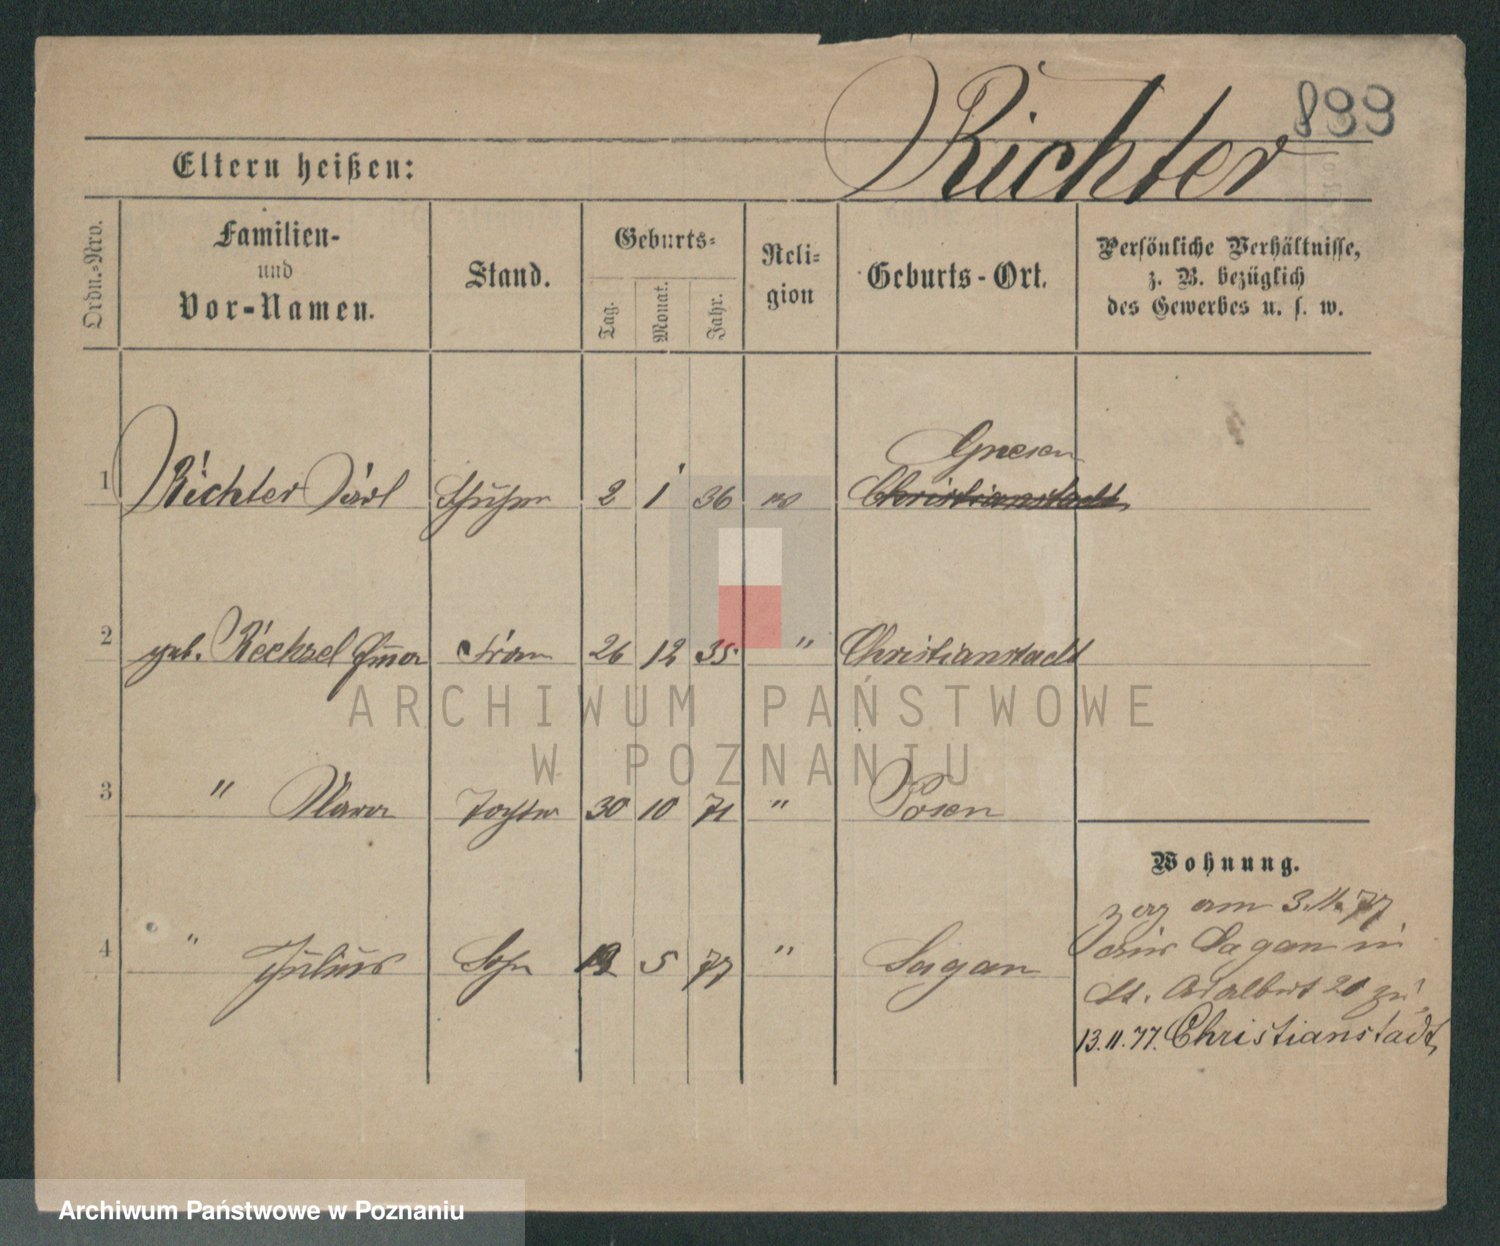 Richter 899
Eltern heißen:
Ordn.-Nro.
Familien-
und
Vor-Namen.
Stand.
Geburts-
Tag.
Monat.
Jahr.
Reli-
gion
Geburts-Ort.
Persönliche Verhältnisse,
z. B. bezüglich
des Gewerbes u. s. w.
Gnesen
1 Richter Carl 2 1 36 Christianstadt
2 geb. Frau 26 12 35 " Christianstadt
3 " Clara Tochter 30 10 71 " Posen
4 " Julius Sohn 5 77 " Sagan
Wohnung.
zog am 3.11.77
aus Sagan in
St. Adalbert zu
13.11.77. Christianstadt
ARCHIWUM PAŃSTWOWE
W POZNANIU
Archiwum Państwowe w Poznaniu